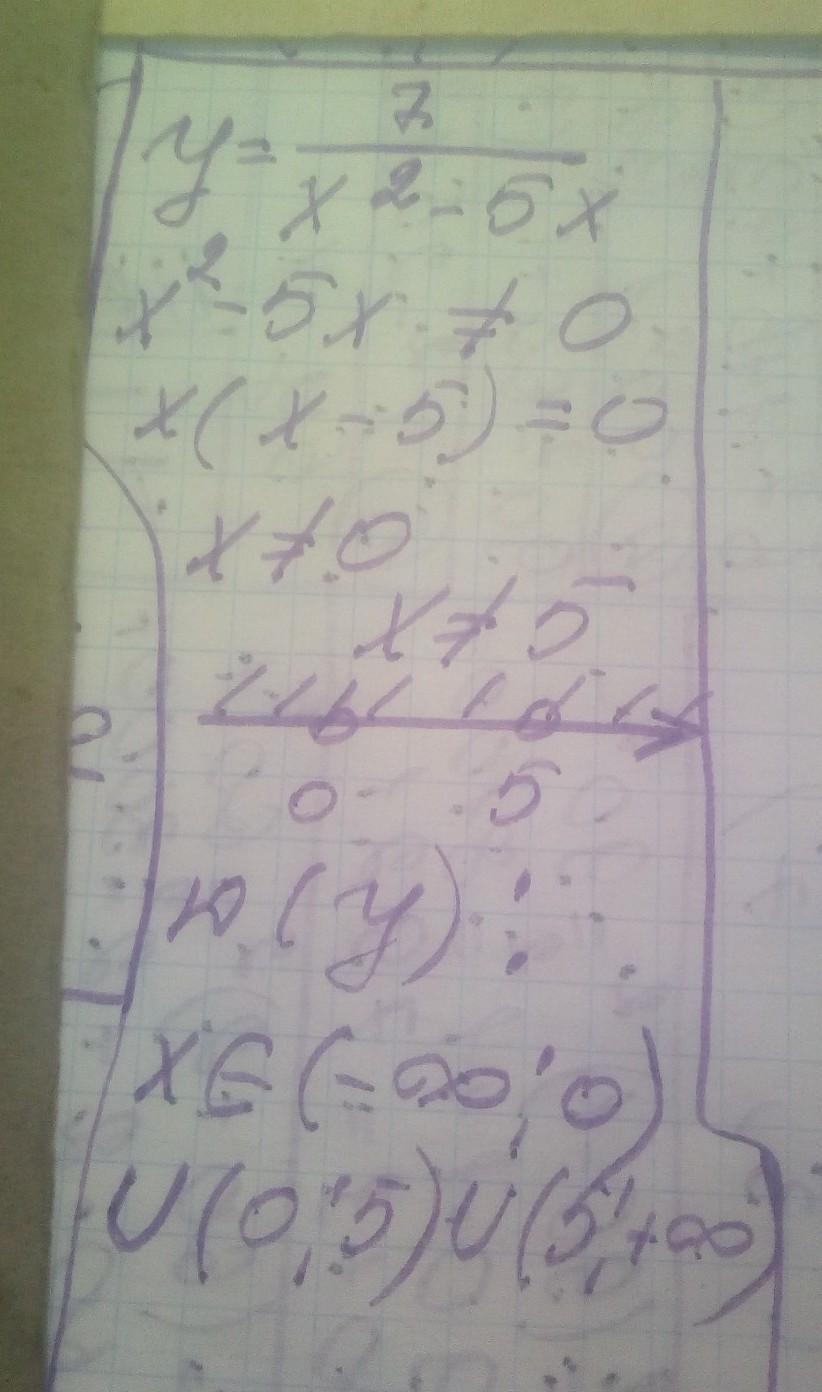 y = 7 / (x² - 5x)
x² - 5x ≠ 0
x(x - 5) = 0
x ≠ 0
x ≠ 5
0 5
D(y):
x ∈ (-∞; 0)
∪(0; 5)∪(5; +∞)